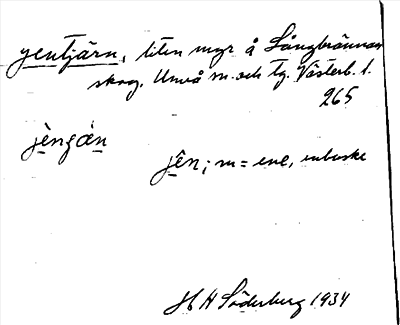 yentjärn, liten myr å Långbrännan
skog, Umeå m. och tg. Västerb. l.
265
jèngàn
jên; m = ene, enbuske
H H Söderberg 1934